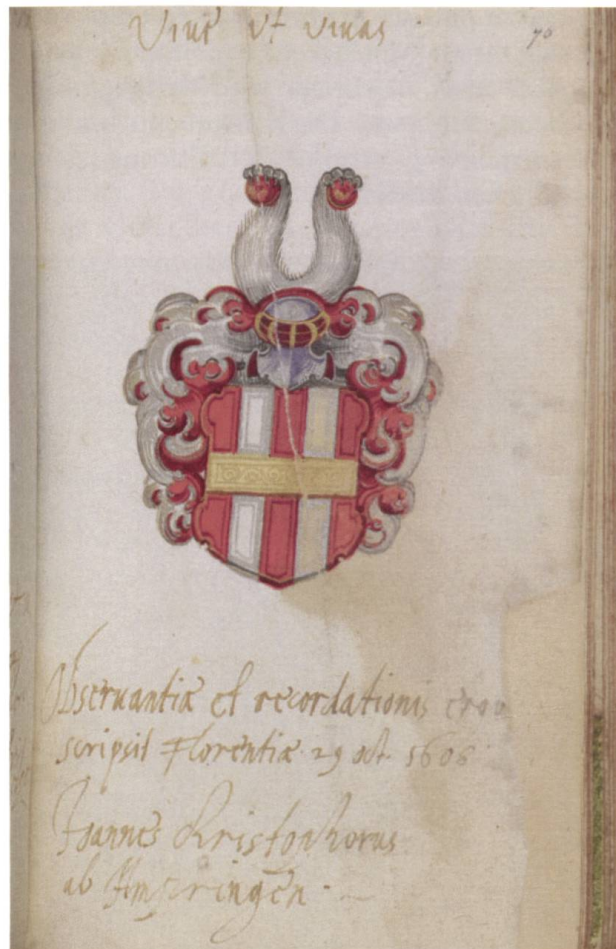 Viue vt viuas
70
Obseruantiæ et recordationis ergo
scripsit Florentiæ 29 oct. 1606
Joannes Christophorus
ab Ampringen